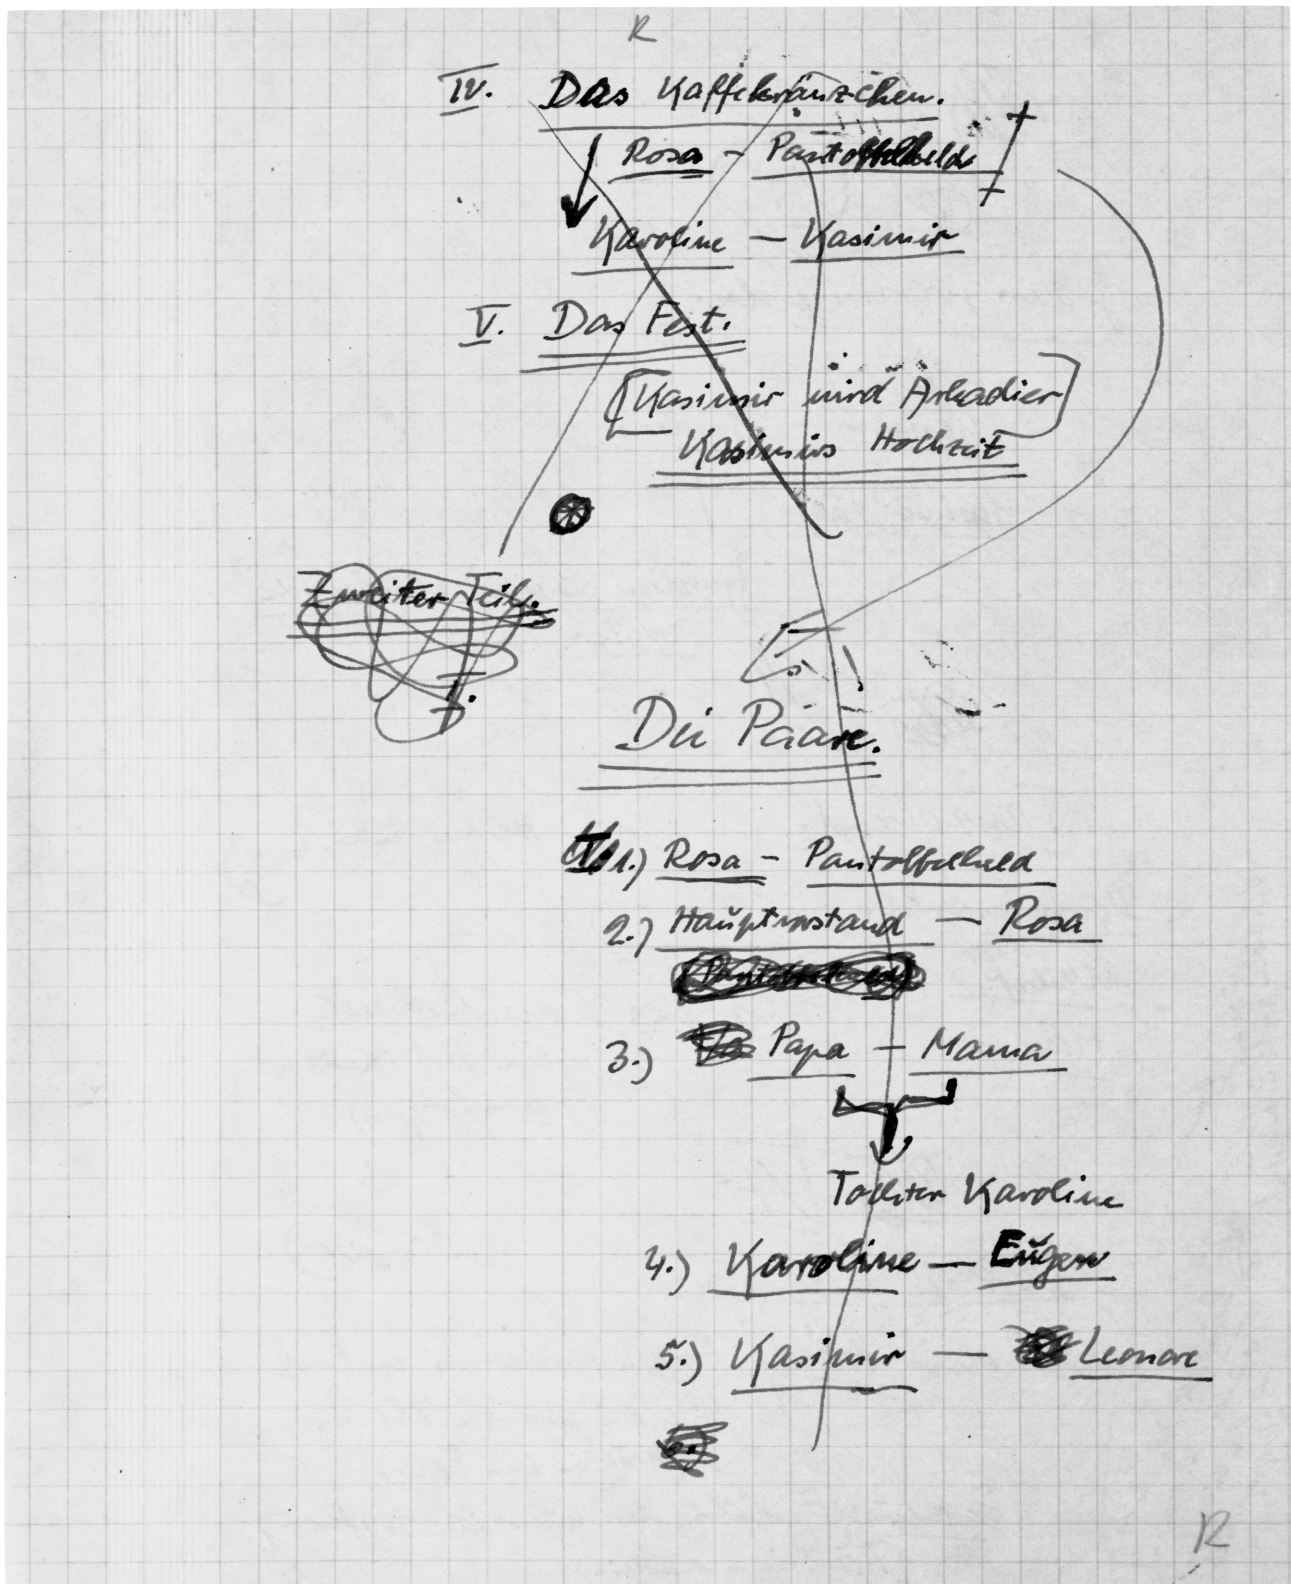 R
IV. Das Kaffekränzchen.
Rosa - Pantoffelheld
Karoline — Kasimir
V. Das Fest.
[Kasimir wird Arkadier]
Kasimirs Hochzeit
Zweiter Teil.
I.
Die Paare.
1.) Rosa - Pantoffelheld
2.) Hauptvorstand — Rosa
(Pantoffelheld)
3.) Papa — Mama
Tochter Karoline
4.) Karoline — Eugen
5.) Kasimir — Leonore
6.)
R